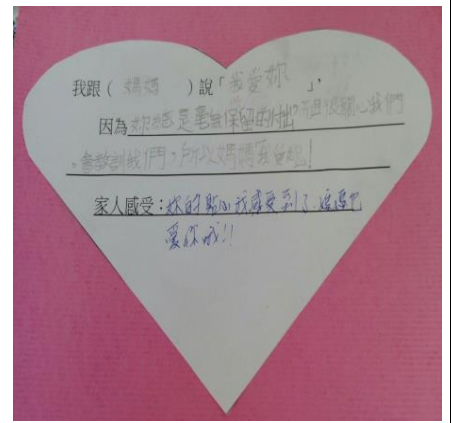 我跟( 媽媽 )說「我愛妳」,
因為妳總是毫無保留的付出,而且很關心我們
,會教訓我們,所以媽媽我愛妳!
家人感受:妳的貼心我感受到了,
愛你哦!!